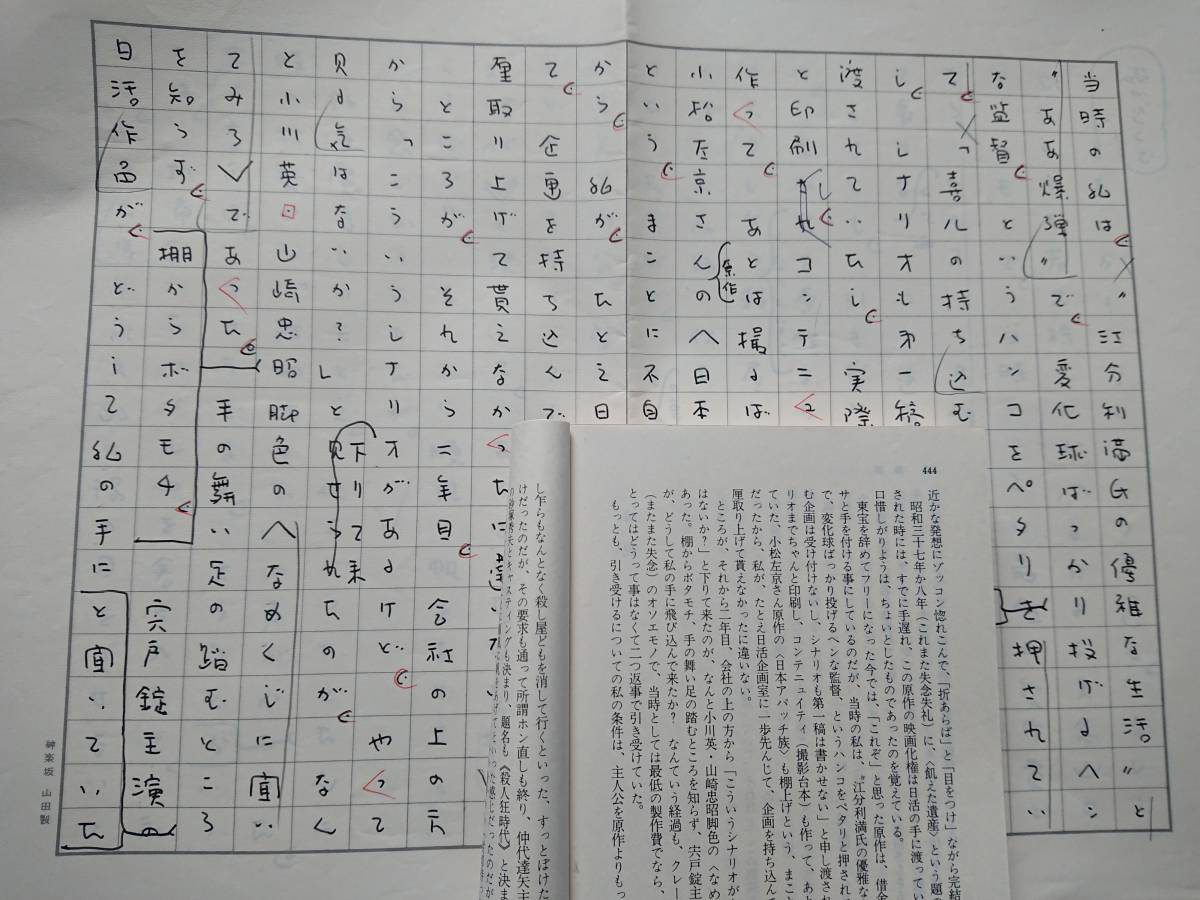 当時の私は、〝江分利満氏の優雅な生活〟と
〝ああ爆弾〟で、変化球ばっかり投げるヘン
な監督、というハンコをペタリと押されてい
喜八の持ち込む
し、シナリオも第一稿
渡されていたし、実際
と印刷し、コンテニ
作って、あとは撮るば
小松左京さん原作の〈日本
という、まことに不自
から、私が、たとえ日
て、企画を持ち込んで
厘取り上げて貰えなかったに違い
ところが、それから二年目、会社の上の方
から「こういうシナリオがあるけど、やって
見る気はないか?」と下りて来たのが、なん
と小川英・山崎忠昭脚色の〈なめくじに聞い
てみろ〉であった。手の舞い足の踏むところ
を知らず、棚からボタモチ、宍戸錠主演の
日活作品が、どうして私の手に
神楽坂 山田製
444
近かな発想にゾッコン惚れこんで、「折あらば」と「目をつけ」ながら完結
昭和三十七年か八年（これまた失念失礼）に、〈飢えた遺産〉という題
された時には、すでに手遅れ、この原作の映画化権は日活の手に渡ってい
口惜しがりようは、ちょいとしたものであったのを覚えている。
東宝を辞めてフリーになった今では、「これぞ」と思った原作は、借金
サと手を付ける事にしているのだが、当時の私は、〝江分利満氏の優雅な
で、変化球ばっかり投げるヘンな監督、というハンコをペタリと押され
む企画は受け付けないし、シナリオも第一稿は書かせない」と申し渡され
リオまでちゃんと印刷し、コンテニュイティ（撮影台本）も作って、あと
ていた、小松左京さん原作の〈日本アパッチ族〉も棚上げという、まこと
だったから、私が、たとえ日活企画室に一歩先んじて、企画を持ち込んで
厘取り上げて貰えなかったに違いない。
ところが、それから二年目、会社の上の方から「こういうシナリオが
はないか?」と下りて来たのが、なんと小川英・山崎忠昭脚色の〈なめ
あった。棚からボタモチ、手の舞い足の踏むところを知らず、宍戸錠主
が、どうして私の手に飛び込んで来たか? なんていう経過も、クレー
（またまた失念）のオソエモノで、当時としては最低の製作費でなら、
とってはどうって事はなくて二つ返事で引き受けていた。
もっとも、引き受けるについての私の条件は、主人公を原作よりもっ
し乍らもなんとなく殺し屋どもを消して行くといった、すっとぼけた
けだったのだが、その要求も通って所謂ホン直しも終り、仲代達矢主
キャスティングも決まり、題名も《殺人狂時代》と決ま